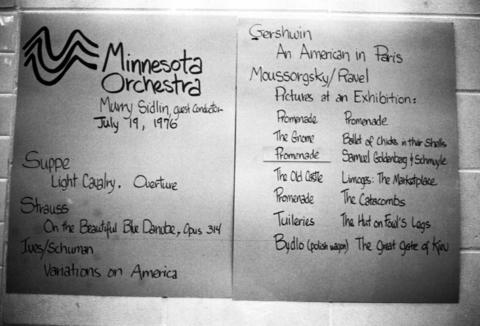 Minnesota
Orchestra
Murry Sidlin, guest conductor
July 19, 1976
Suppe
Light Cavalry. Overture
Strauss
On the Beautiful Blue Danube, Opus 314
Ives/Schuman
Variations on America
Gershwin
An American in Paris
Moussorgsky/Ravel
Pictures at an Exhibition:
Promenade
The Gnome
Promenade
The Old Castle
Promenade
Tuileries
Bydlo (polish wagon)
Promenade
Ballet of Chicks in their Shells
Samuel Goldenberg & Schmuyle
Limoges: The Marketplace
The Catacombs
The Hut on Fowl's Legs
The Great Gate of Kiev